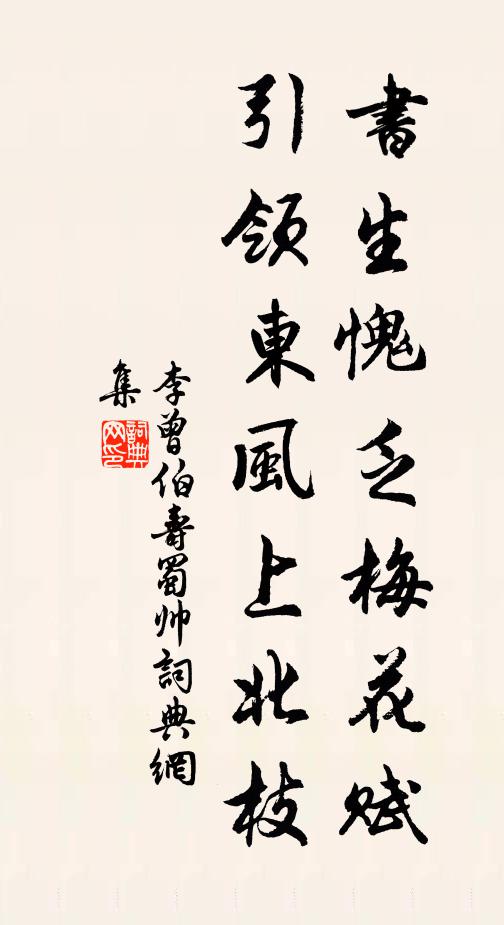 書生愧乏梅花賦
引領東風上北枝
李曾伯壽蜀帥詞典網
集
詞典網印